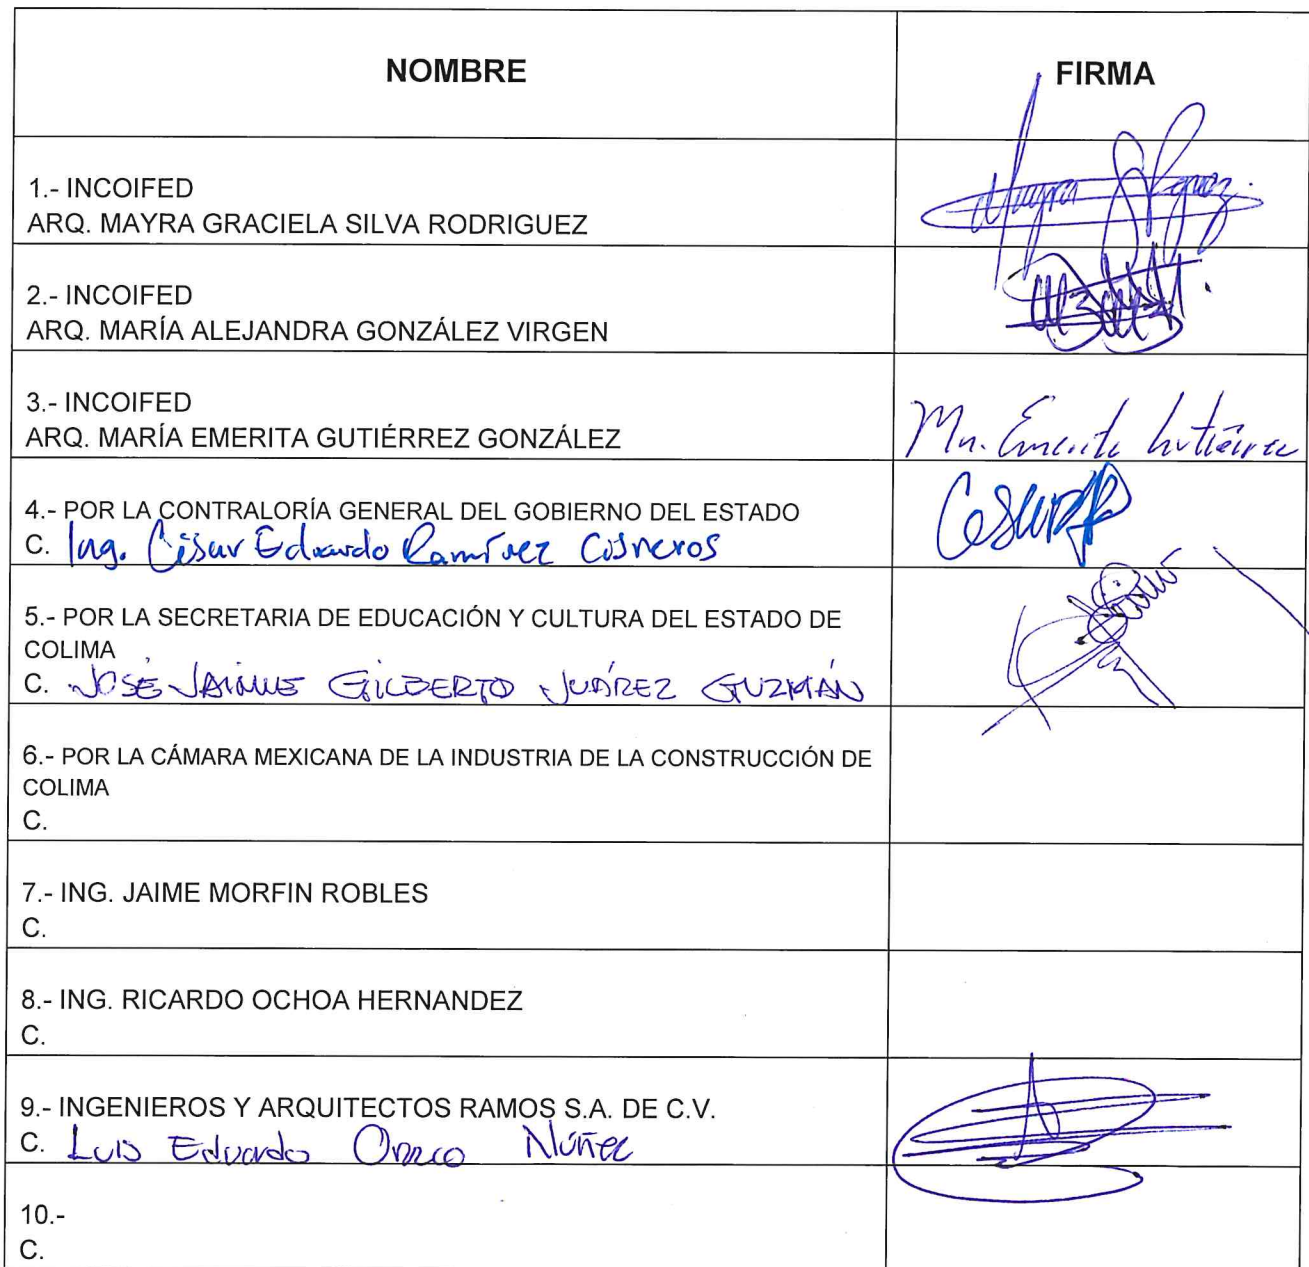 NOMBRE
FIRMA
1.- INCOIFED
ARQ. MAYRA GRACIELA SILVA RODRIGUEZ
2.- INCOIFED
ARQ. MARÍA ALEJANDRA GONZÁLEZ VIRGEN
3.- INCOIFED
ARQ. MARÍA EMERITA GUTIÉRREZ GONZÁLEZ
Ma. Emerita Gutiérrez
4.- POR LA CONTRALORÍA GENERAL DEL GOBIERNO DEL ESTADO
C. Ing. César Eduardo Ramírez Cisneros
5.- POR LA SECRETARIA DE EDUCACIÓN Y CULTURA DEL ESTADO DE
COLIMA
C. JOSÉ JAIME GILBERTO JUÁREZ GUZMÁN
6.- POR LA CÁMARA MEXICANA DE LA INDUSTRIA DE LA CONSTRUCCIÓN DE
COLIMA
C.
7.- ING. JAIME MORFIN ROBLES
C.
8.- ING. RICARDO OCHOA HERNANDEZ
C.
9.- INGENIEROS Y ARQUITECTOS RAMOS S.A. DE C.V.
C. Luis Eduardo Orozco Núñez
10.-
C.